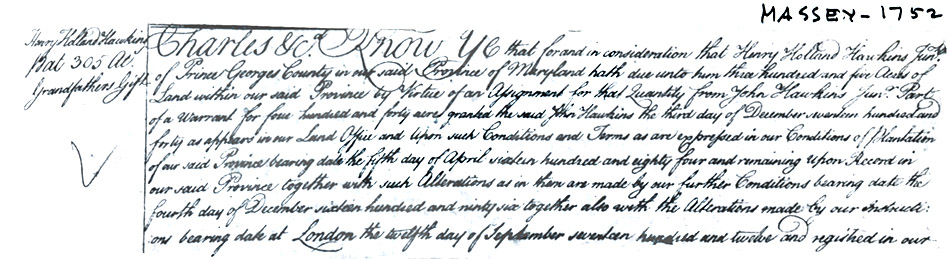 MASSEY - 1752
Henry Holland Hawkins
Pat 305 Ac.
Grandfathers Gift
Charles &c.a Know Ye that for and in consideration that Henry Holland Hawkins Jun.r
of Prince Georges County in our said Province of Maryland hath due unto him three hundred and five Acres of
Land within our said Province by Virtue of an Assignment for that Quantity from John Hawkins Jun.r Part
of a Warrant for four hundred and forty acres granted the said John Hawkins the third day of December seventeen hundred and
forty as appears in our Land Office and Upon such Conditions and Terms as are expressed in our Conditions of Plantation
of our said Province bearing date the fifth day of April sixteen hundred and eighty four and remaining Upon Record in
our said Province together with such Alterations as in them are made by our further Conditions bearing date the
fourth day of December sixteen hundred and ninty six together also with the Alterations made by our Instructi:
ons bearing date at London the twelfth day of September seventeen hundred and twelve and registred in our